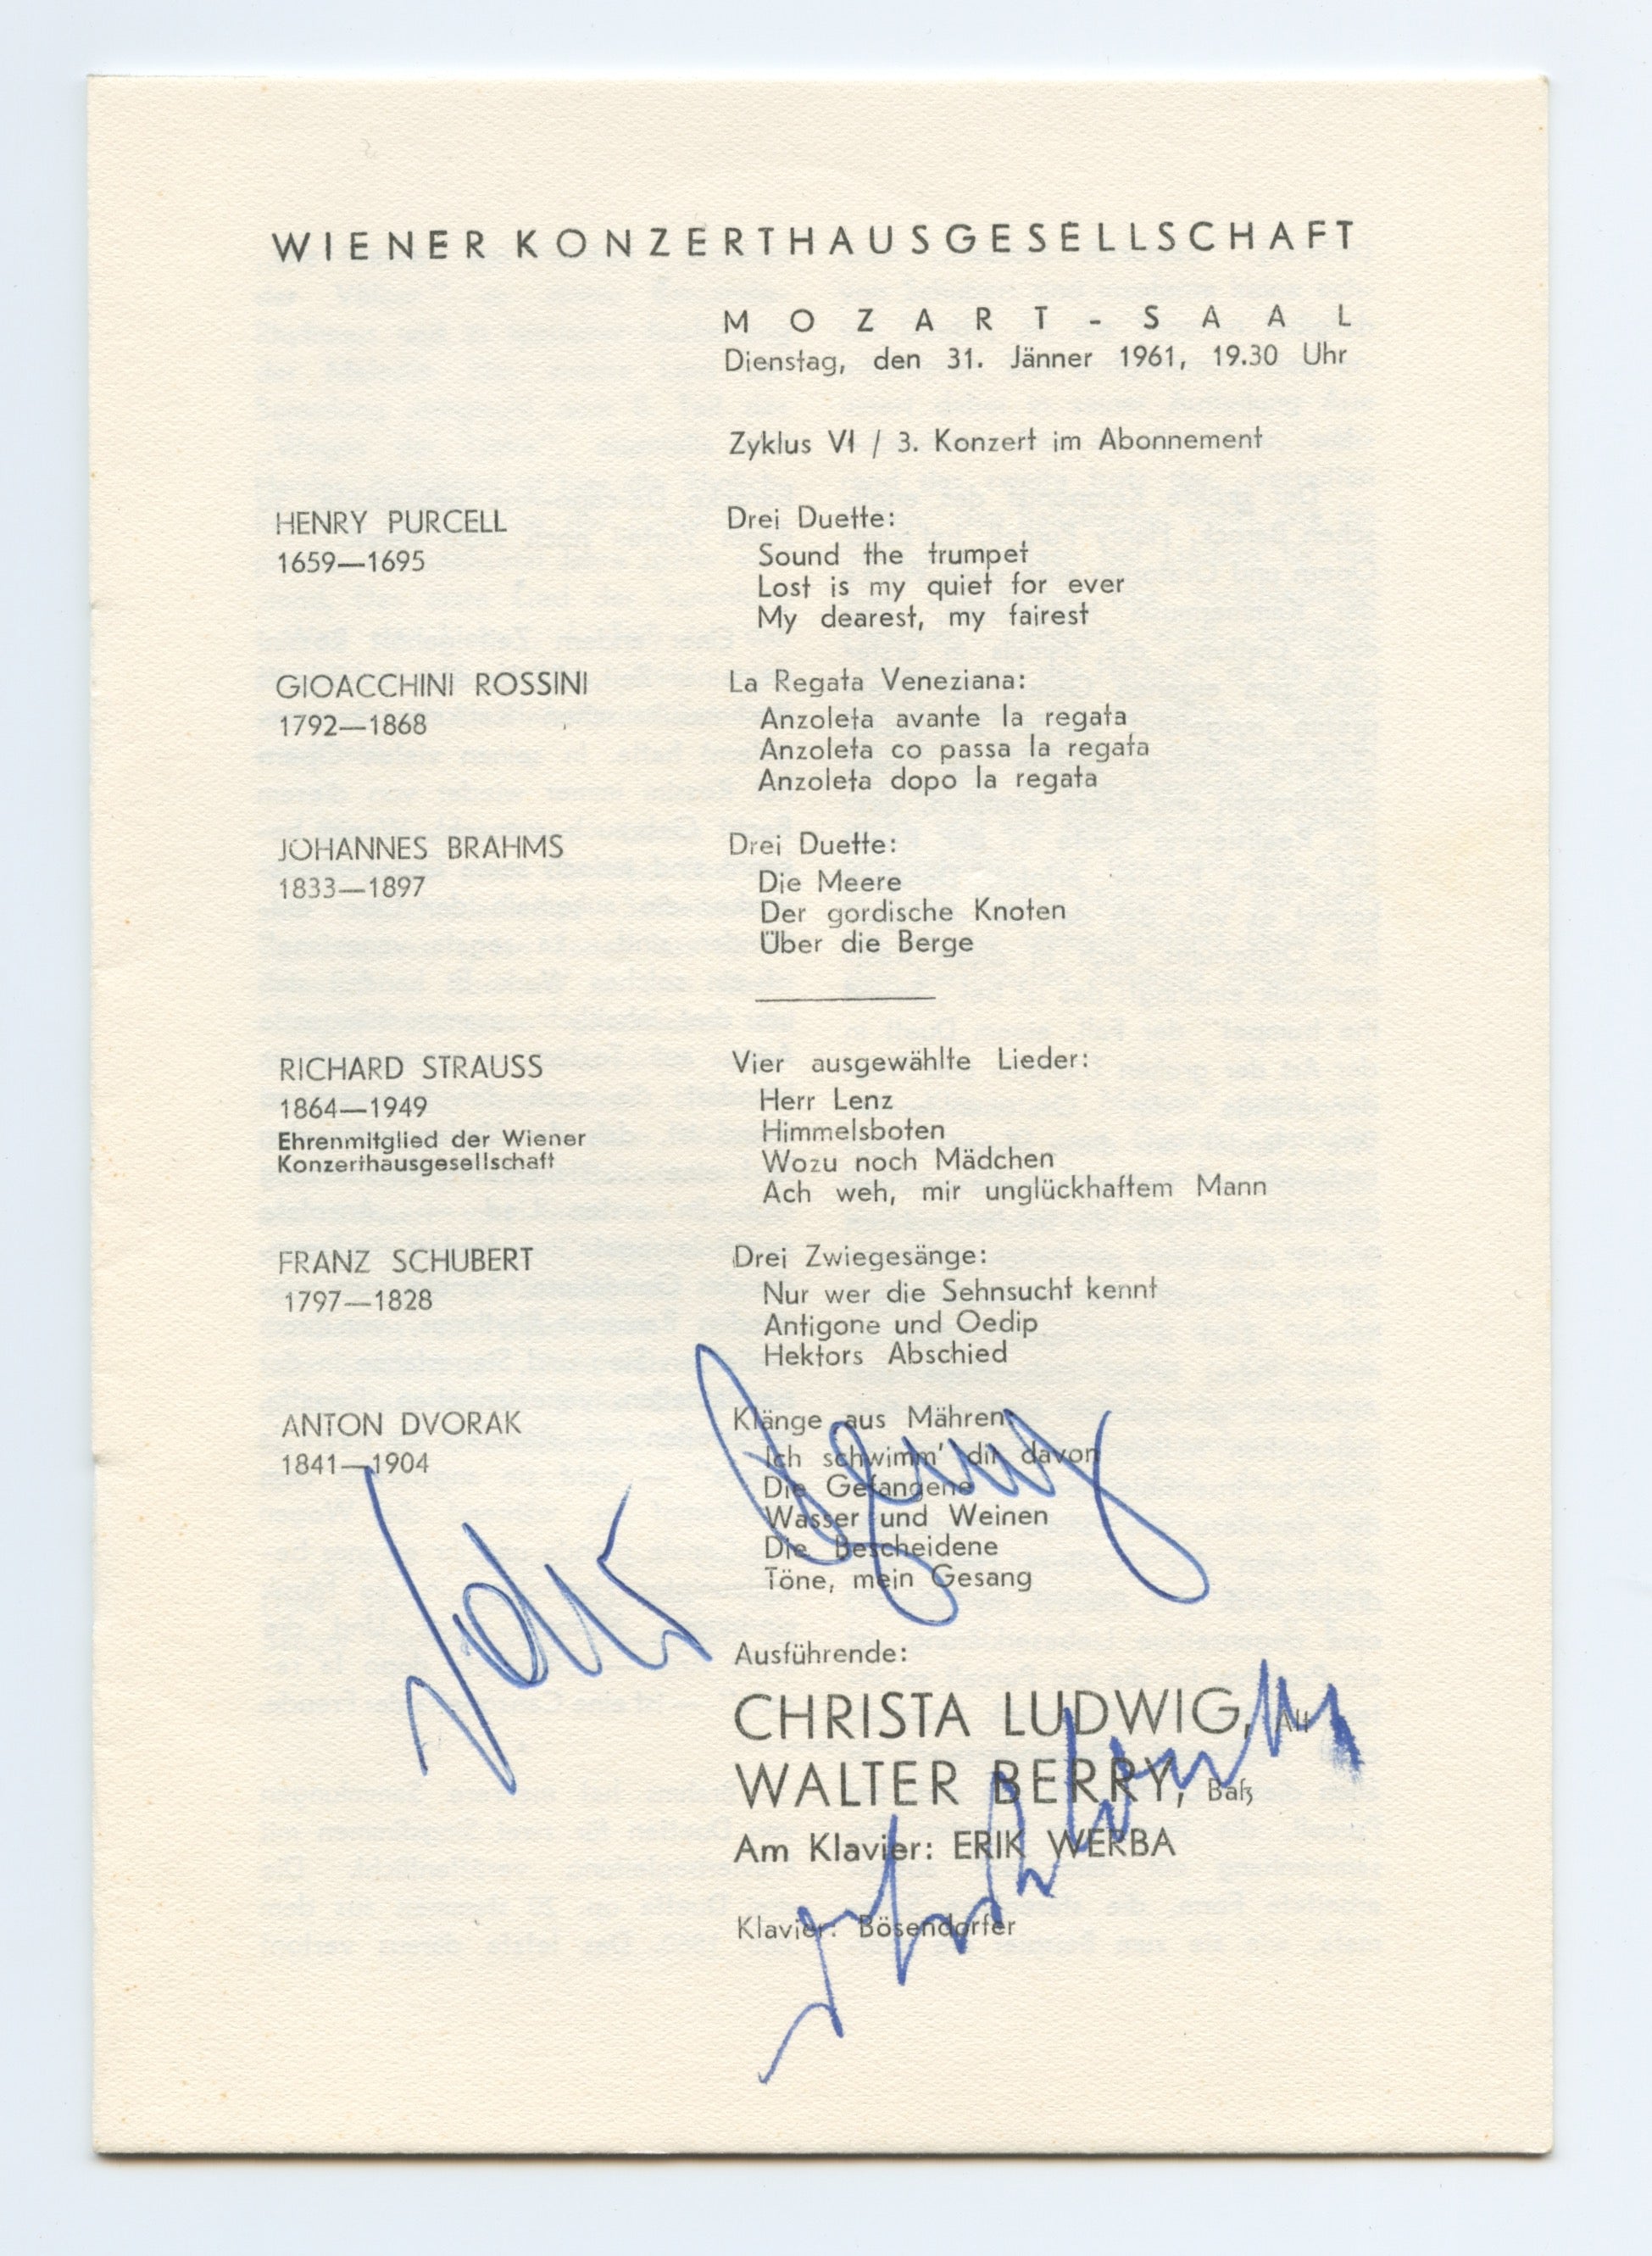 WIENER KONZERTHAUSGESELLSCHAFT
MOZART-SAAL
Dienstag, den 31. Jänner 1961, 19.30 Uhr
Zyklus VI / 3. Konzert im Abonnement
HENRY PURCELL
1659—1695
Drei Duette:
Sound the trumpet
Lost is my quiet for ever
My dearest, my fairest
GIOACCHINI ROSSINI
1792—1868
La Regata Veneziana:
Anzoleta avante la regata
Anzoleta co passa la regata
Anzoleta dopo la regata
JOHANNES BRAHMS
1833—1897
Drei Duette:
Die Meere
Der gordische Knoten
Über die Berge
RICHARD STRAUSS
1864—1949
Ehrenmitglied der Wiener
Konzerthausgesellschaft
Vier ausgewählte Lieder:
Herr Lenz
Himmelsboten
Wozu noch Mädchen
Ach weh, mir unglückhaftem Mann
FRANZ SCHUBERT
1797—1828
Drei Zwiegesänge:
Nur wer die Sehnsucht kennt
Antigone und Oedip
Hektors Abschied
ANTON DVORAK
1841—1904
Klänge aus Mähren
Ich schwimm' dir davon
Die Gefangene
Wasser und Weinen
Die Bescheidene
Töne, mein Gesang
Ausführende:
CHRISTA LUDWIG, Alt
WALTER BERRY, Baß
Am Klavier: ERIK WERBA
Klavier: Bösendorfer